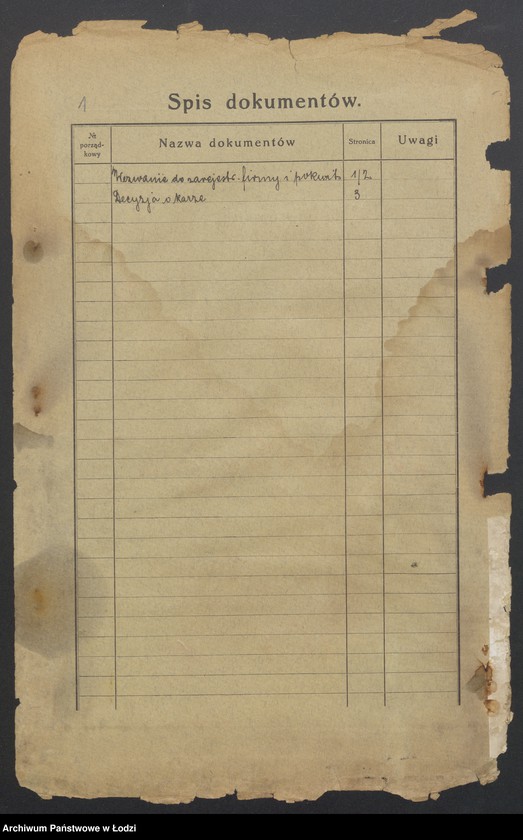 1
Spis dokumentów.
№ porząd-kowy Nazwa dokumentów Stronica Uwagi
Wezwanie do zarejestr. firmy i pokwit. 1/2
Decyzja o karze 3
Archiwum Państwowe w Łodzi